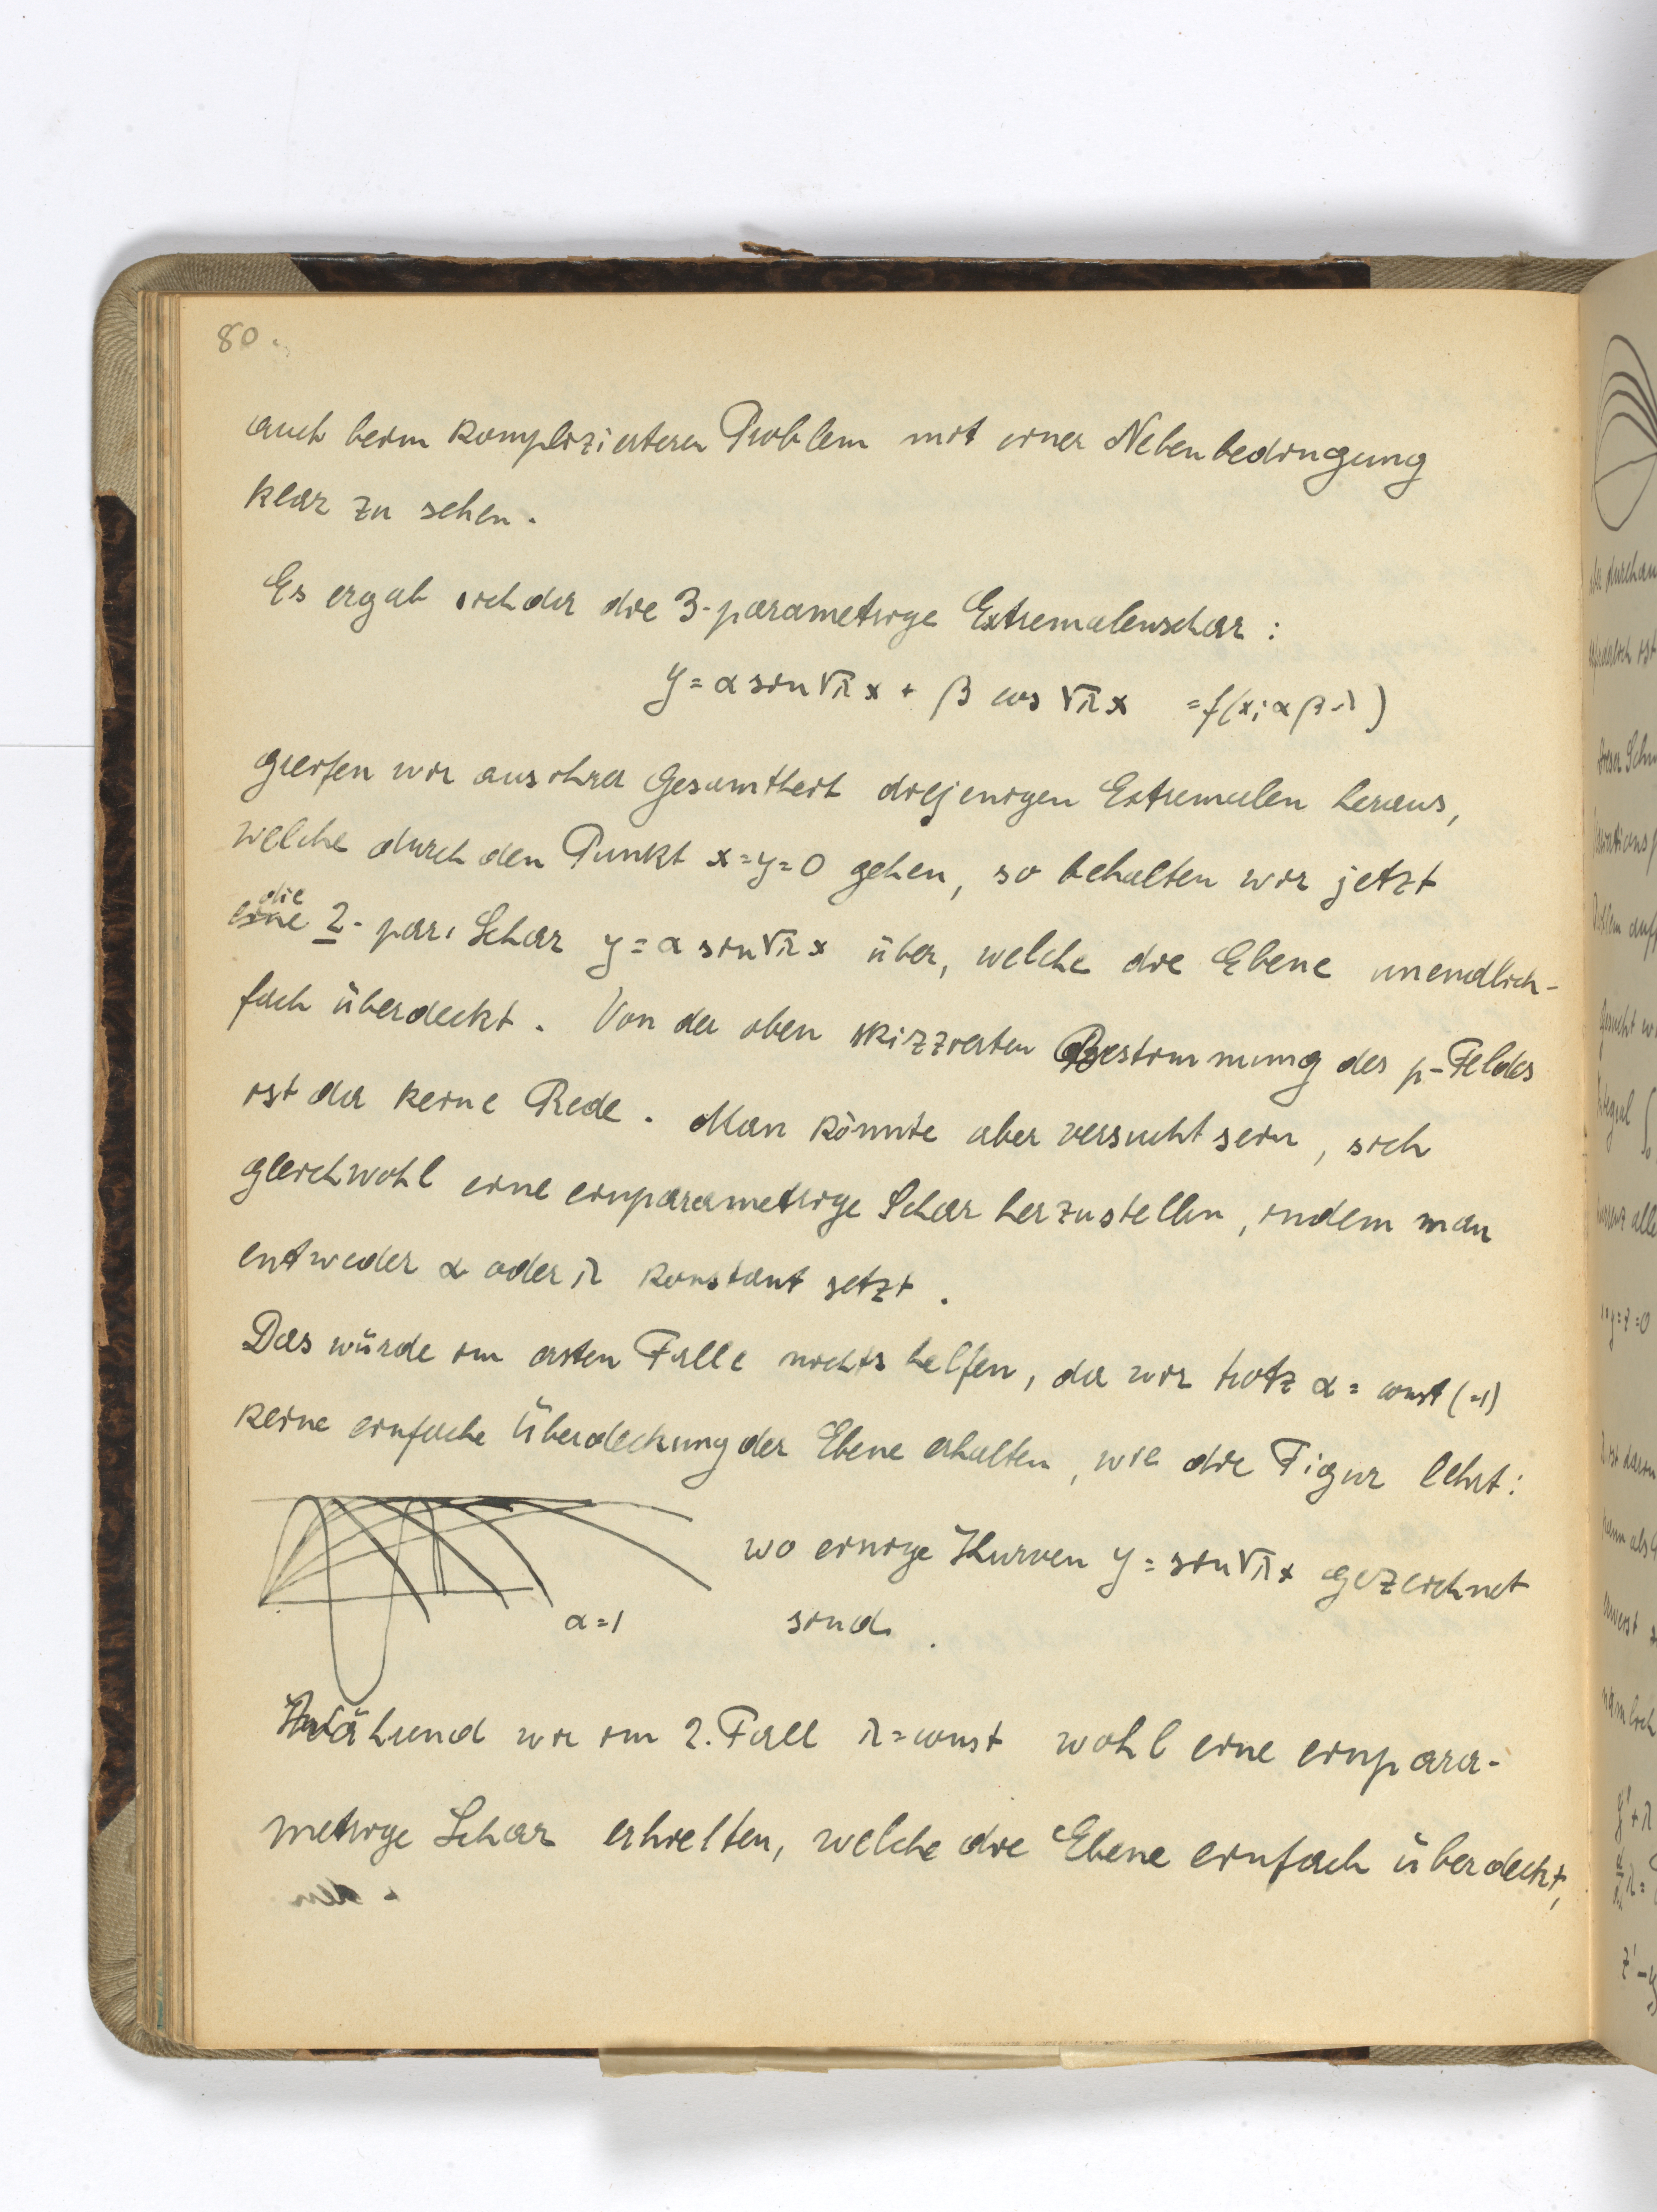 80.
auch beim komplizierteren Problem mit einer Nebenbedingung
klar zu sehen.
Es ergab sich da die 3-parametrige Extremalenschar:
y = α sin √λ x + β cos √λ x = f(x; α β λ)
greifen wir aus ihrer Gesamtheit diejenigen Extremalen heraus,
welche durch den Punkt x=y=0 gehen, so behalten wir jetzt
die
eine 2-par. Schar y = α sin √λ x über, welche die Ebene unendlich-
fach überdeckt. Von der oben skizzierten Bestimmung des p-Feldes
ist da keine Rede. Man könnte aber versucht sein, sich
gleichwohl eine einparametrige Schar herzustellen, indem man
entweder α oder λ konstant setzt.
Das würde im ersten Falle nichts helfen, da wir trotz α = const (=1)
keine einfache Überdeckung der Ebene erhalten, wie die Figur lehrt:
wo einige Kurven y = sin √λ x gezeichnet
α=1
sind.
Während wir im 2. Fall λ = const wohl eine einpara-
metrige Schar erhielten, welche die Ebene einfach überdeckt,